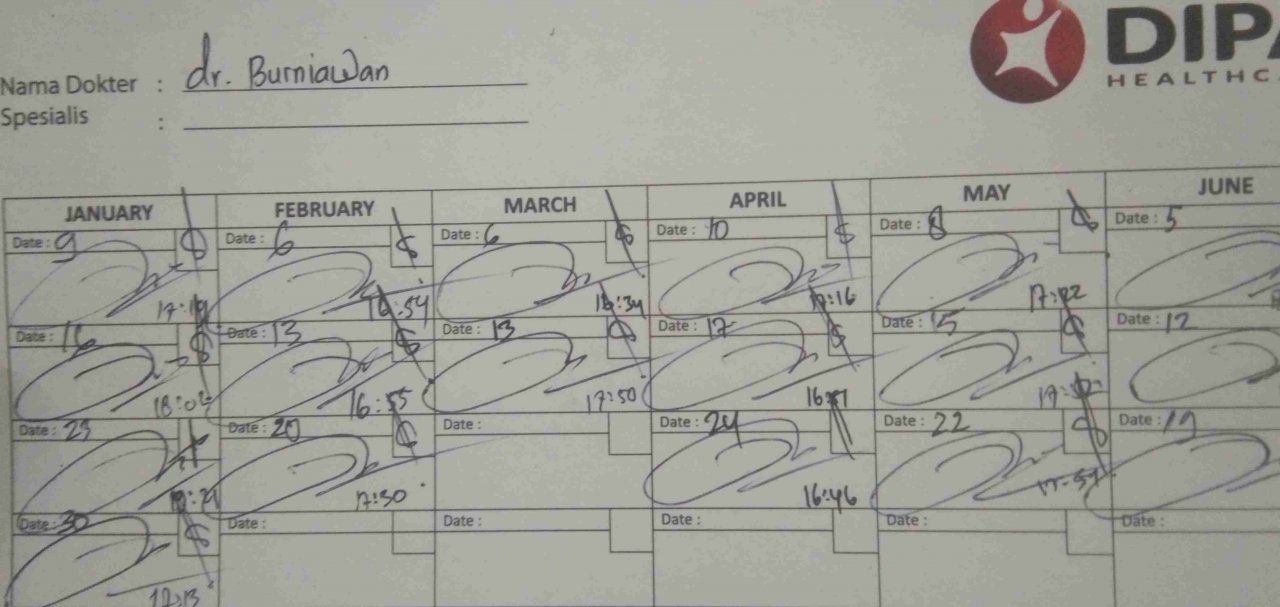 DIPA
HEALTHC
Nama Dokter : dr. Burniawan
Spesialis :
JANUARY FEBRUARY MARCH APRIL MAY JUNE
Date : 9 Date : 6 Date : 6 Date : 10 Date : 8 Date : 5
17:19 16:54 16:34 17:16 17:22
Date : 16 Date : 13 Date : 13 Date : 17 Date : 15 Date : 12
18:05 16:55 17:50
Date : 23 Date : 20 Date : Date : 24 Date : 22 Date : 19
17:30 16:46
Date : 30 Date : Date : Date : Date : Date :
17:13